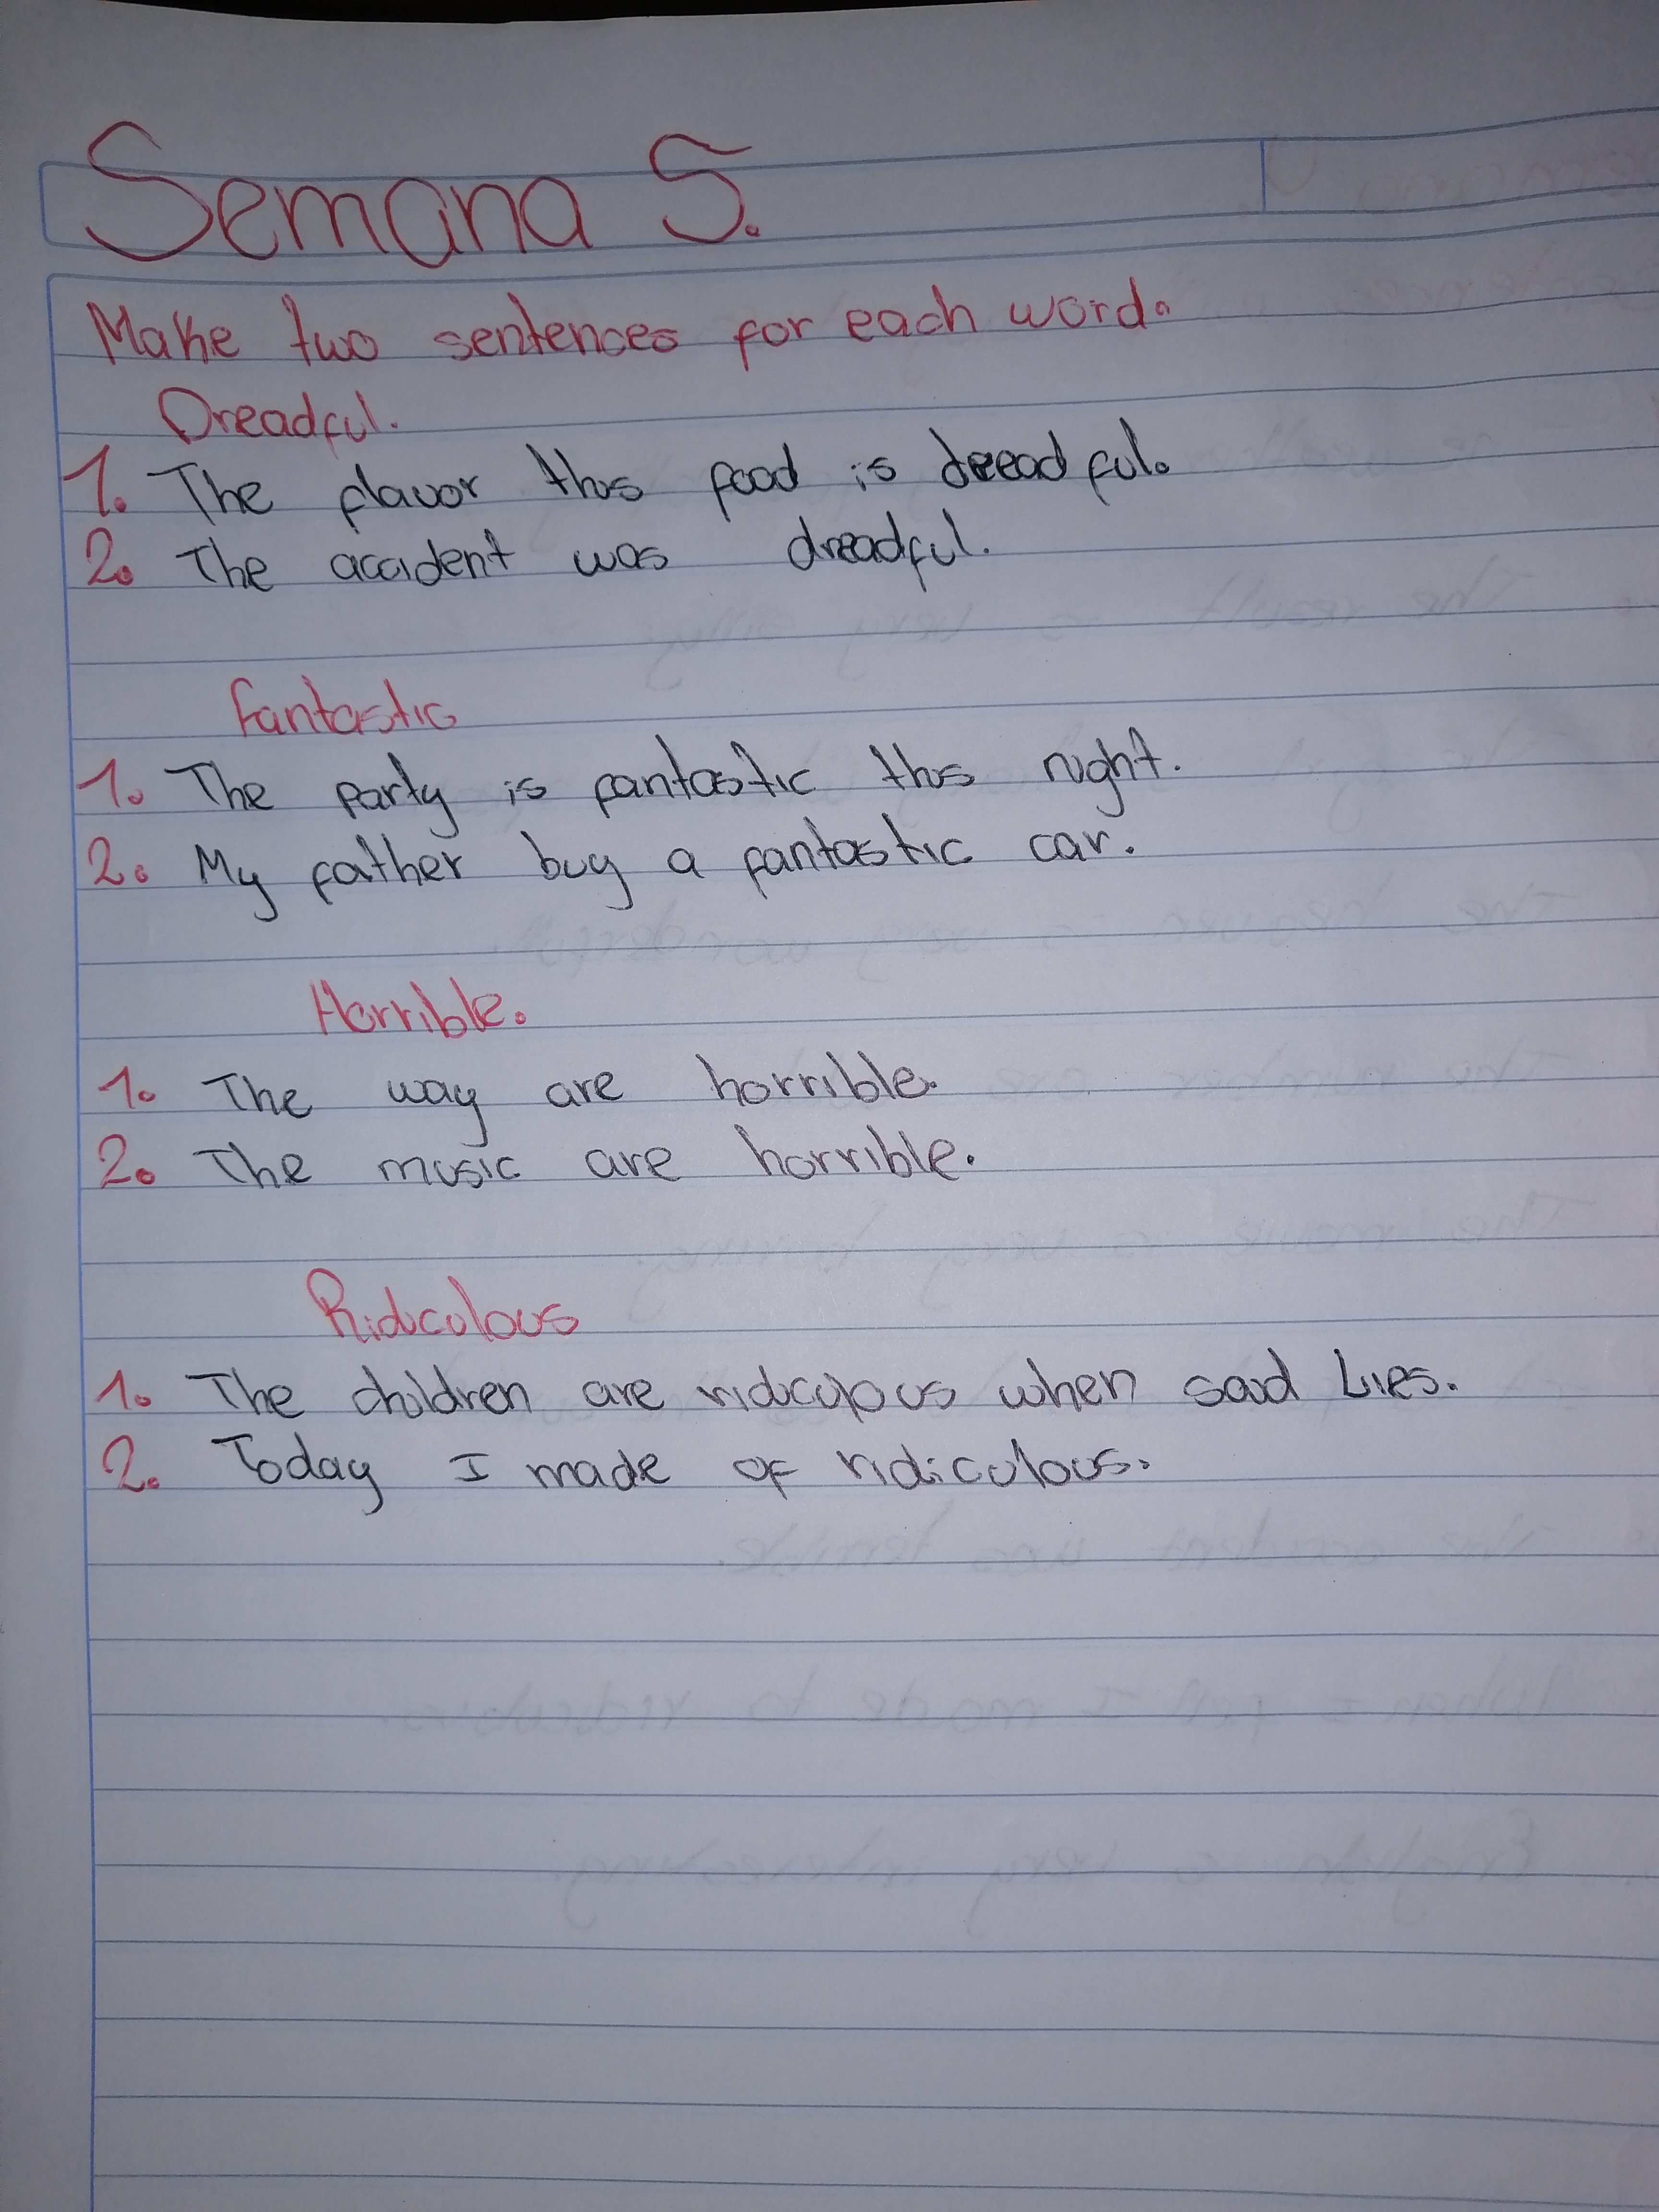 Semana 5.
Make two sentences for each word.
Dreadful.
1. The flavor this food is dreadful.
2. The accident was dreadful.
Fantastic
1. The party is fantastic this night.
2. My father buy a fantastic car.
Horrible.
1. The way are horrible.
2. The music are horrible.
Ridiculous
1. The children are ridiculous when said Lies.
2. Today I made of ridiculous.